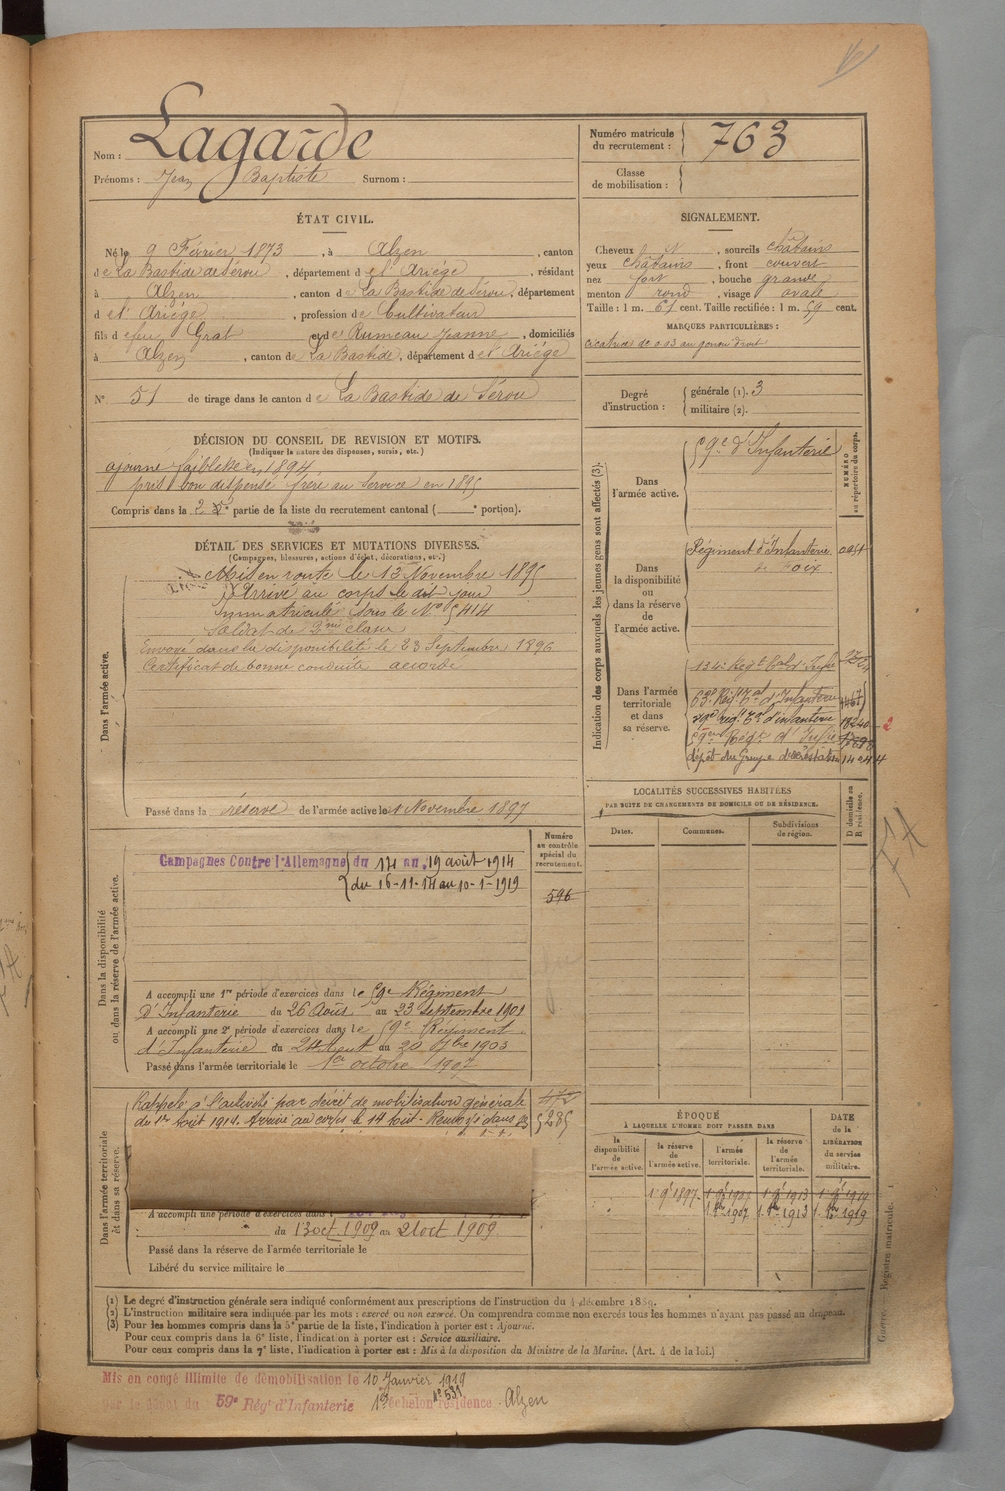 Nom : Lagarde
Prénoms : Jean Baptiste Surnom :
Numéro matricule du recrutement : 763
Classe de mobilisation :
ÉTAT CIVIL.
Né le 9 Février 1873, à Alzen, canton
de La Bastide de Sérou, département de l'Ariège, résidant
à Alzen, canton de La Bastide de Sérou, département
de l'Ariège, profession de Cultivateur
fils de feu Grat et de Rumeau Jeanne, domiciliés
à Alzen, canton de La Bastide, département de l'Ariège
N° 51 de tirage dans le canton de La Bastide de Sérou
SIGNALEMENT.
Cheveux N, sourcils châtains
yeux châtains, front couvert
nez fort, bouche grande
menton rond, visage ovale
Taille : 1 m. 61 cent. Taille rectifiée : 1 m. 59 cent.
MARQUES PARTICULIÈRES :
cicatrice de 0.03 au genou droit
Degré d'instruction : générale (1). 3
militaire (2).
DÉCISION DU CONSEIL DE REVISION ET MOTIFS.
(Indiquer la nature des dispenses, sursis, etc.)
ajourné faiblesse en 1894
pris bon dispensé frère au service en 1895
Compris dans la 2e partie de la liste du recrutement cantonal ( portion).
DÉTAIL DES SERVICES ET MUTATIONS DIVERSES.
(Campagnes, blessures, actions d'éclat, décorations, etc.)
Dans l'armée active.
Mis en route le 13 Novembre 1895
Arrivé au corps le dit jour
Immatriculé sous le N° 5414
Soldat de 2me classe
Envoyé dans la disponibilité le 23 Septembre 1896
Certificat de bonne conduite accordé
Passé dans la réserve de l'armée active le 1 Novembre 1897
Indication des corps auxquels les jeunes gens sont affectés (3).
NUMÉRO au répertoire du corps.
Dans l'armée active.
59e d'Infanterie
Dans la disponibilité ou dans la réserve de l'armée active.
Régiment d'Infanterie
de Foix
Dans l'armée territoriale et dans sa réserve.
134e Régt Tal d'Infie
63e Régt Tal d'Infanterie
Régt Tal d'infanterie 18240
59eme Régt d'Infie
dépôt du Groupe
LOCALITÉS SUCCESSIVES HABITÉES
PAR SUITE DE CHANGEMENTS DE DOMICILE OU DE RÉSIDENCE.
Dates. Communes. Subdivisions de région. D domicile ou R résidence.
Dans la disponibilité ou dans la réserve de l'armée active.
Numéro au contrôle spécial du recrutement.
596
Campagnes Contre l'Allemagne du 14 au 19 août 1914
du 16-11-14 au 10-1-1919
A accompli une 1re période d'exercices dans le 59e Régiment
d'Infanterie du 26 Août au 23 Septembre 1901
A accompli une 2e période d'exercices dans le 59e Régiment
d'Infanterie du 24 Août au 20 7bre 1903
Passé dans l'armée territoriale le 1er octobre 1907
Dans l'armée territoriale et dans sa réserve.
Rappelé à l'activité par décret de mobilisation générale
du 1er Août 1914. Arrivé au corps le 14 Août. Renvoyé dans
5285
A accompli une période d'exercices dans
du 13 oct. 1909 au 21 oct 1909
Passé dans la réserve de l'armée territoriale le
Libéré du service militaire le
ÉPOQUE
À LAQUELLE L'HOMME DOIT PASSER DANS
la disponibilité de l'armée active. la réserve de l'armée active. l'armée territoriale. la réserve de l'armée territoriale.
DATE de la LIBÉRATION du service militaire.
1. 9e 1897 1. 9e 1907 1. 9e 1913 1. 9e 1919
1. 8e 1907 1. 8e 1913 1. 8e 1919
(1) Le degré d'instruction générale sera indiqué conformément aux prescriptions de l'instruction du 4 décembre 1889.
(2) L'instruction militaire sera indiquée par les mots : exercé ou non exercé. On comprendra comme non exercés tous les hommes n'ayant pas passé au drapeau.
(3) Pour les hommes compris dans la 5e partie de la liste, l'indication à porter est : Ajourné.
Pour ceux compris dans la 6e liste, l'indication à porter est : Service auxiliaire.
Pour ceux compris dans la 7e liste, l'indication à porter est : Mis à la disposition du Ministre de la Marine. (Art. 4 de la loi.)
Registre matricule.
Mis en congé illimité de démobilisation le 10 Janvier 1919
par le dépôt du 59e Régt d'Infanterie 1er échelon n° 531 résidence Alzen